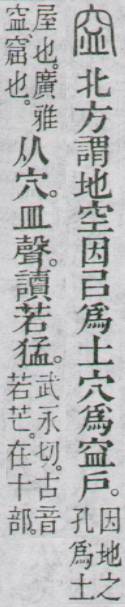 北方謂地空因㠯爲土穴爲戶。因地之
孔爲土
屋也。廣雅
窟也。
从穴。皿聲。讀若猛。武永切。古音
若芒。在十部。